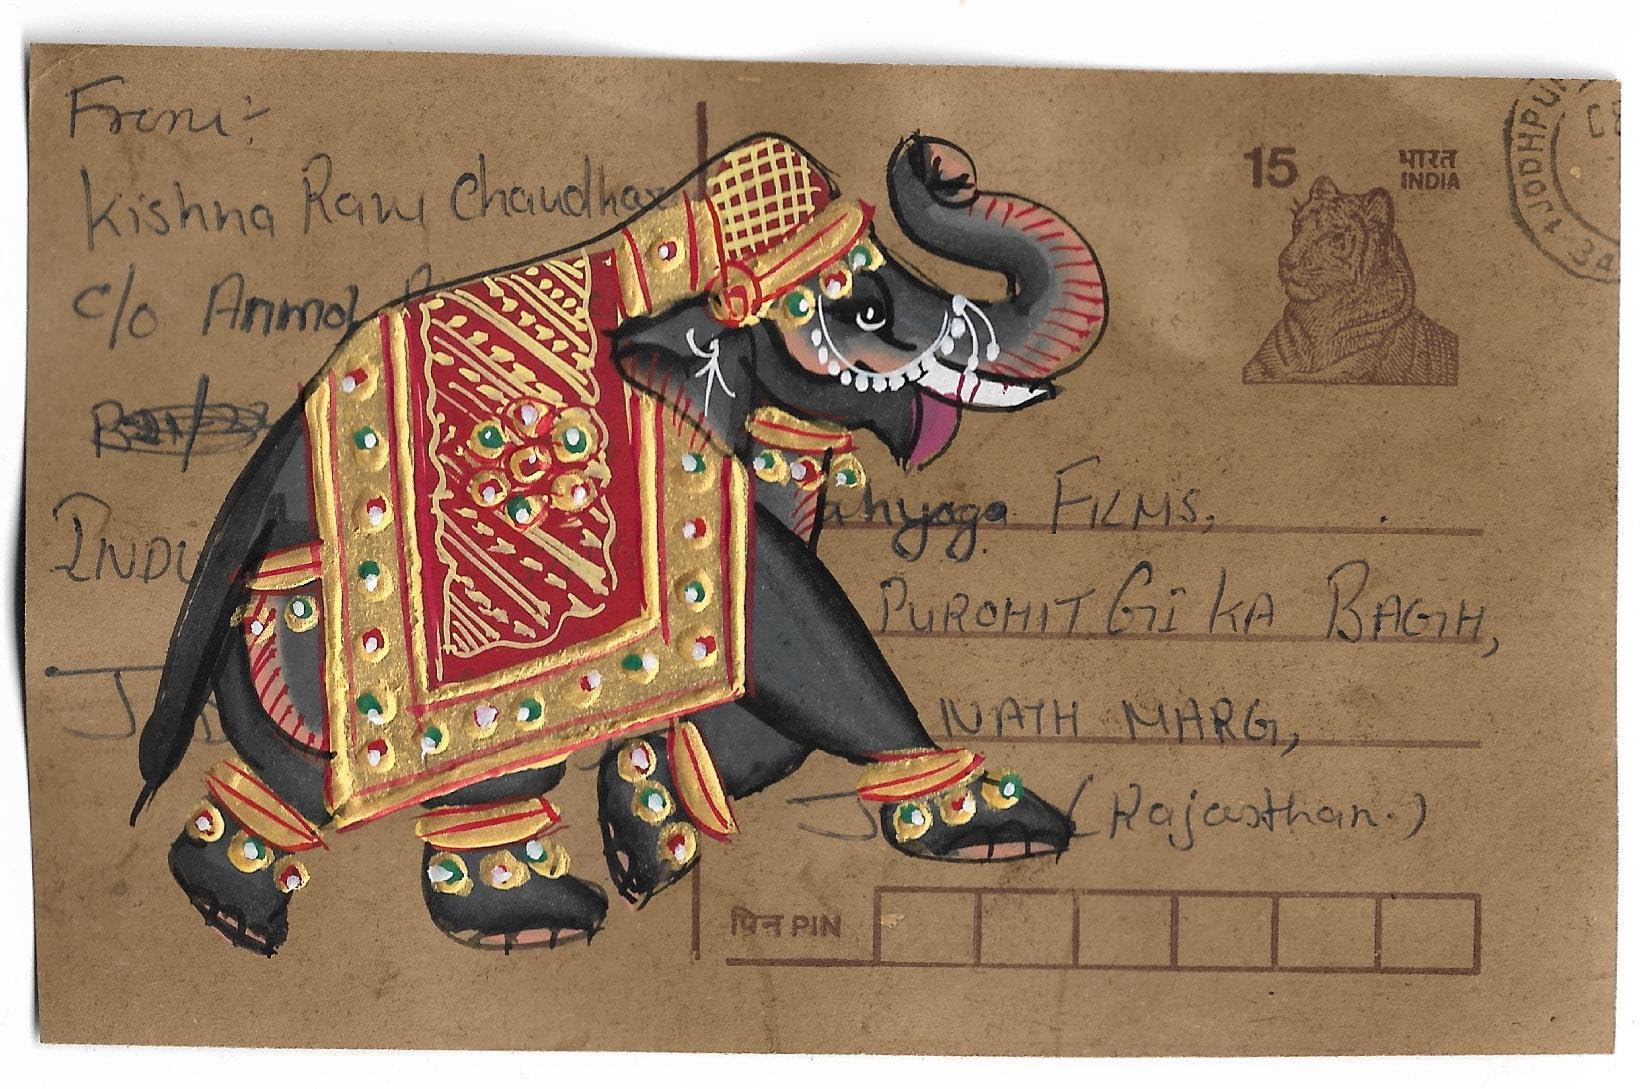 From:-
Kishna Ram Chaudhar
C/o Anmol
INDU
J
15 भारत
INDIA
JODHPU
ahyoga FILMS,
PUROHIT GI KA BAGH,
NATH MARG,
J (Rajasthan.)
पिन PIN